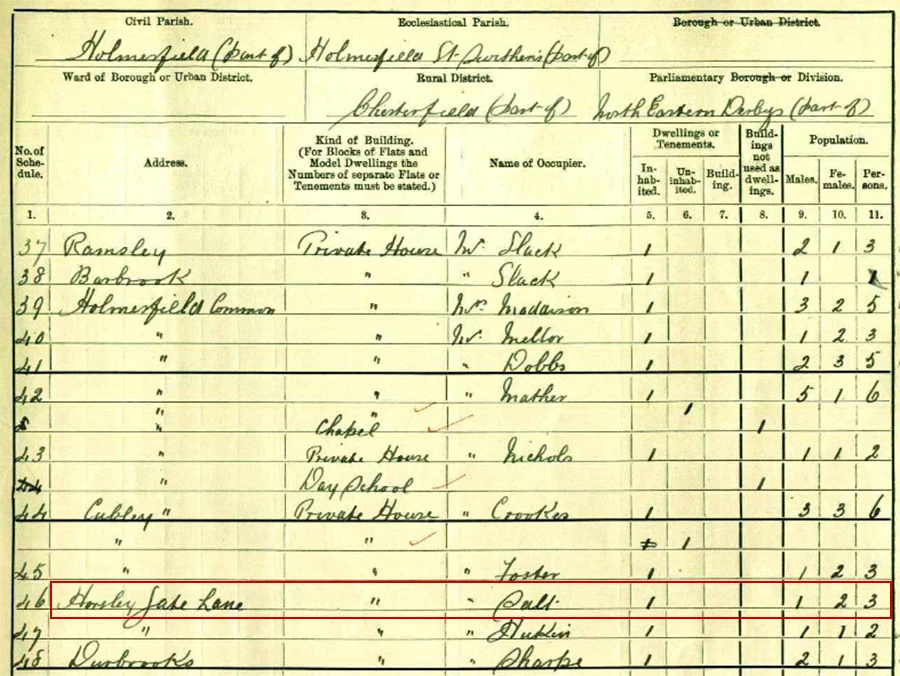 Civil Parish. Ecclesiastical Parish. Borough or Urban District.
Holmesfield (part of) Holmesfield St Swithens (part of)
Ward of Borough or Urban District. Rural District. Parliamentary Borough or Division.
Chesterfield (part of) North Eastern Derbys (part of)
No. of Schedule. Address. Kind of Building. (For Blocks of Flats and Model Dwellings the Numbers of separate Flats or Tenements must be stated.) Name of Occupier. Dwellings or Tenements. Inhabited. Uninhabited. Building. Buildings not used as dwellings. Population. Males. Females. Persons.
1. 2. 3. 4. 5. 6. 7. 8. 9. 10. 11.
37 Ramsley Private House Mr. Slack 1 2 1 3
38 Barbrook " " Slack 1 1 1
39 Holmesfield Common " Mrs. Maddison 1 3 2 5
40 " " Mr. Mellor 1 1 2 3
41 " " " Dobbs 1 2 3 5
42 " " " Mather 1 5 1 6
" " 1
" Chapel 1
43 " Private House " Nichols 1 1 1 2
44 " Day School 1
44 Cubley " Private House " Crookes 1 3 3 6
" " 1 1
45 " " " Foster 1 1 2 3
46 Horsley Gate Lane " " Salt 1 1 2 3
47 " " " Hukin 1 1 1 2
48 Durbrooks " " Sharpe 1 2 1 3